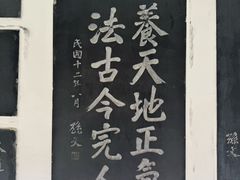 養天地正氣
法古今完人
民國十二年八月
孫文
孫文